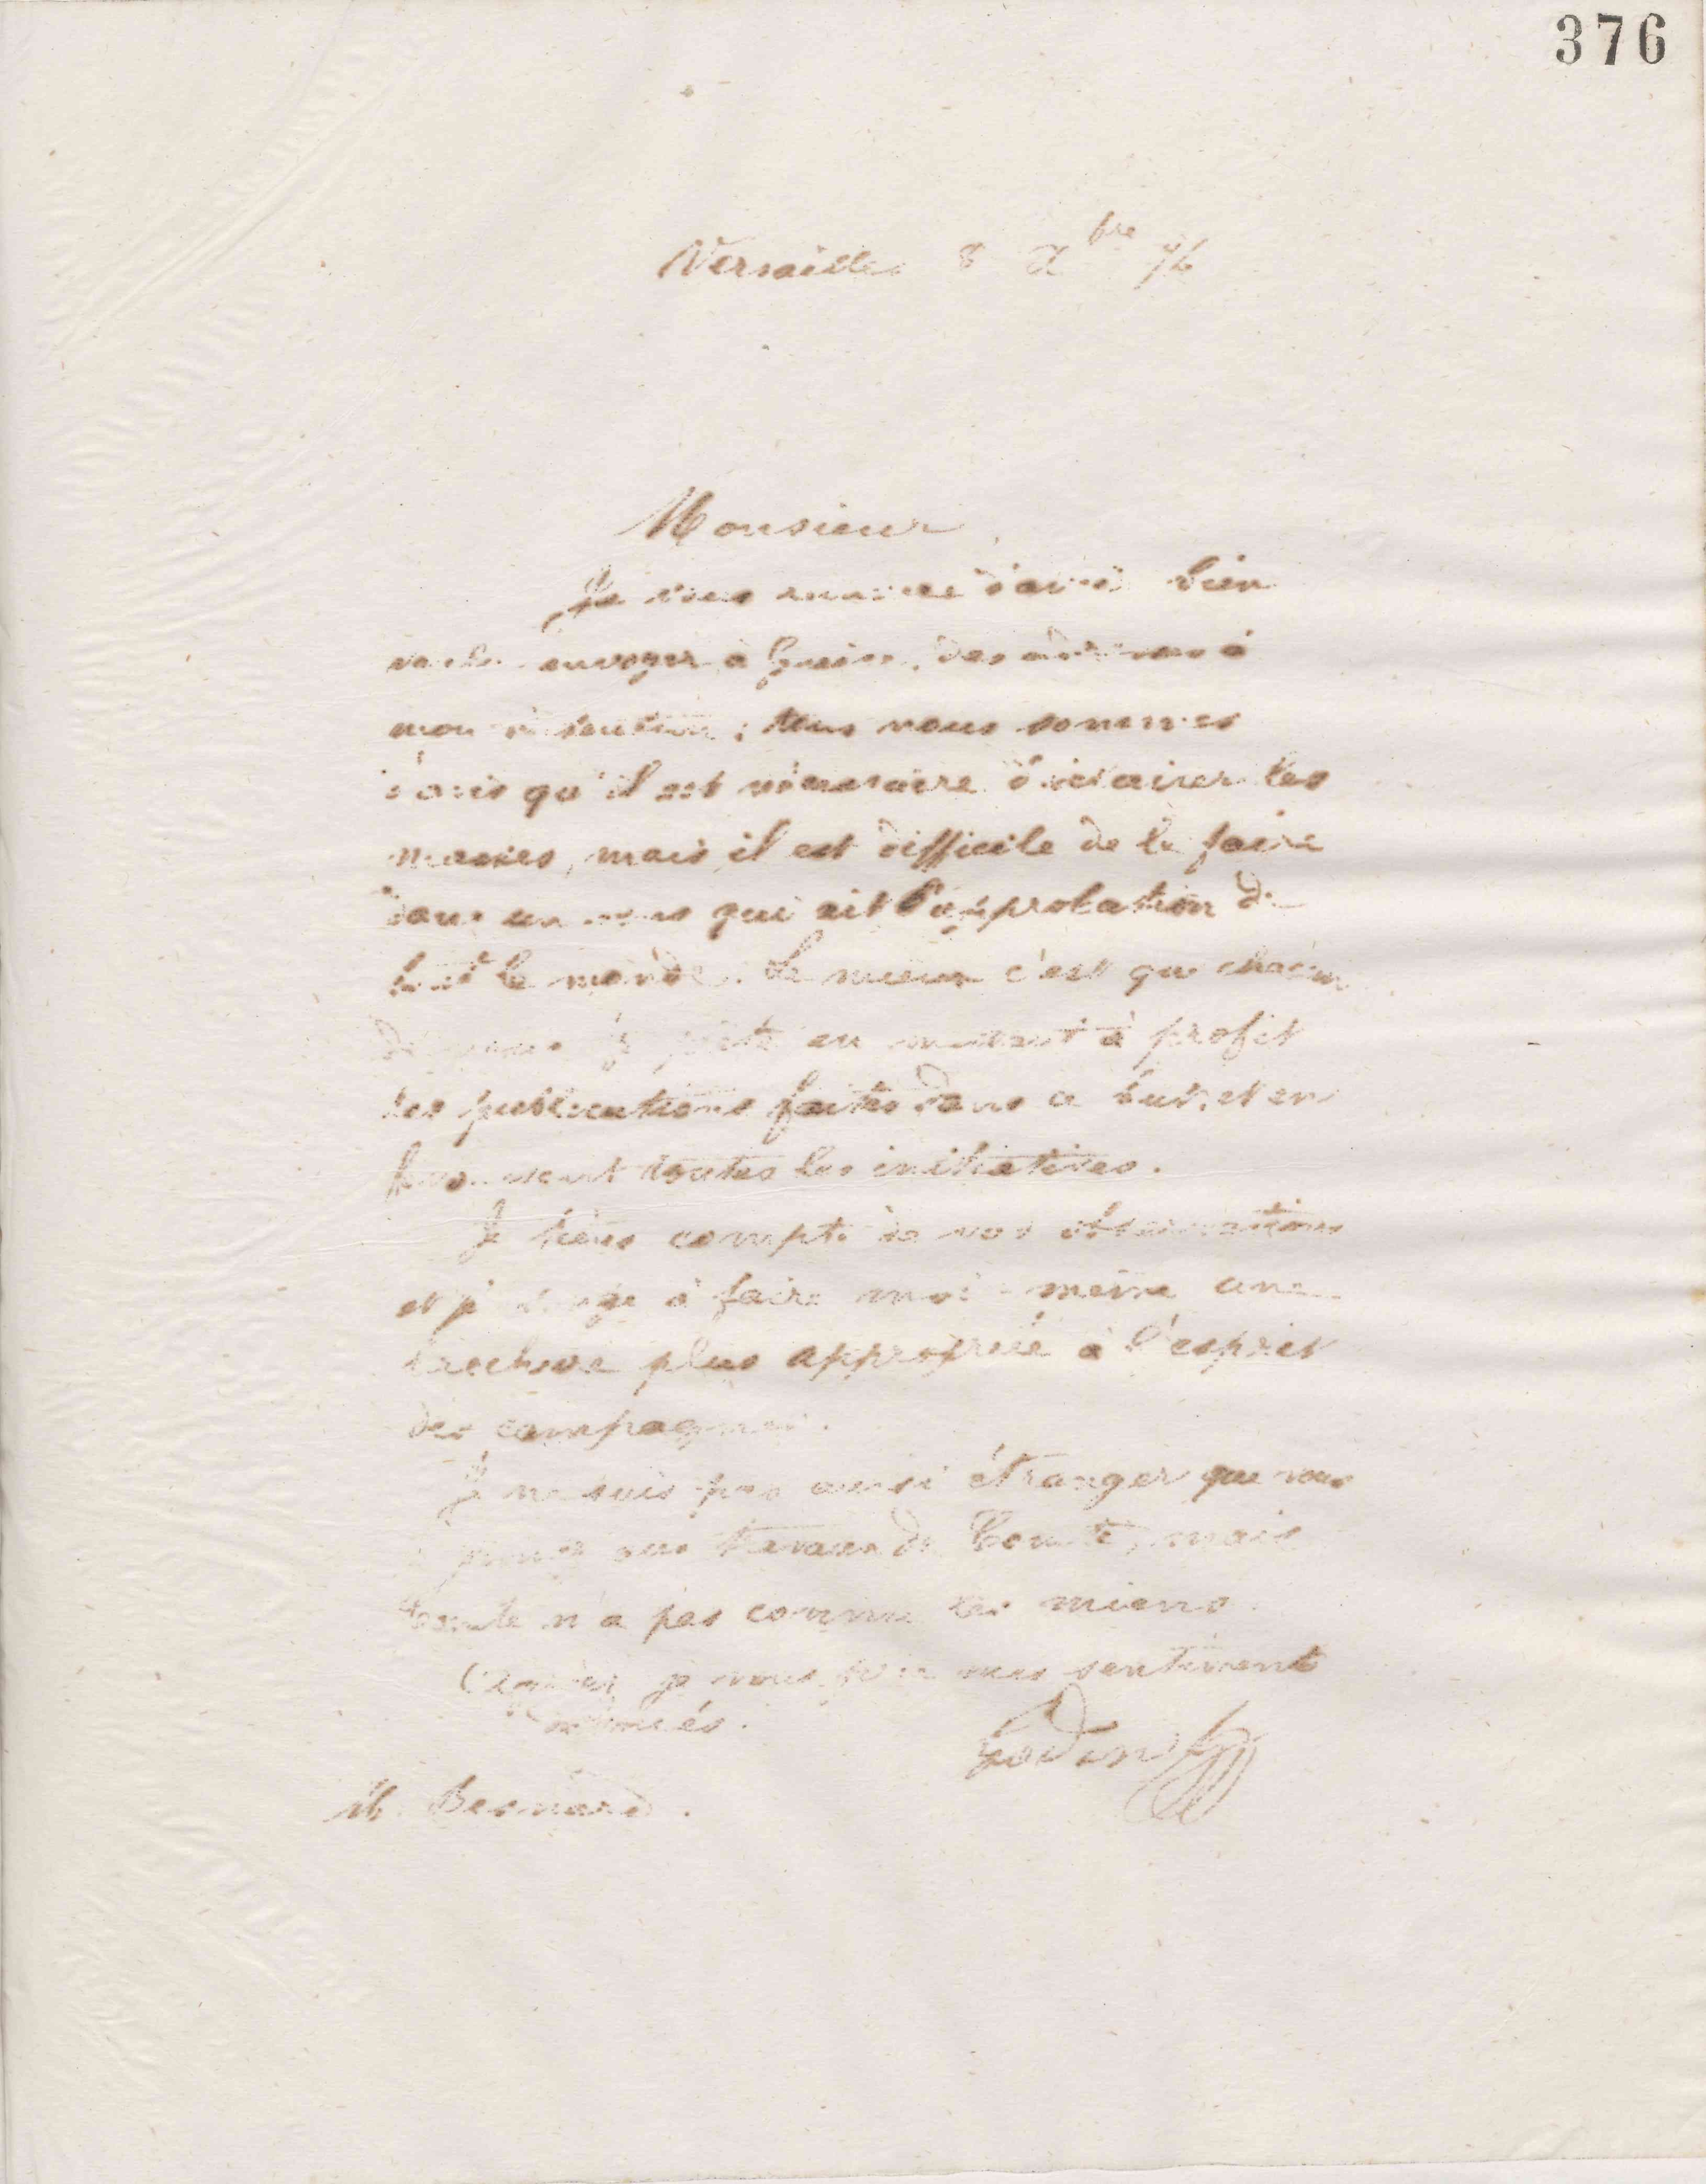 376
Versailles 8 Xbre 76
Monsieur,
Je vous remercie d'avoir bien
voulu envoyer à Guise, des adresses à
mon intention ; tous nous sommes
d'avis qu'il est nécessaire d'éclairer les
masses, mais il est difficile de le faire
dans un sens qui ait l'approbation de
tout le monde. Le mieux c'est que chacun
en mettant à profit
les publications faites dans ce but, et en
favorisant toutes les initiatives.
Je tiens compte de vos observations
et je songe à faire moi-même une
brochure plus appropriée à l'esprit
des campagnes.
Je ne suis pas aussi étranger que vous
aux travaux de Comte, mais
Comte n'a pas connu les miens.
Agréez je vous prie mes sentiments
dévoués.
Godin
M. Bernard.